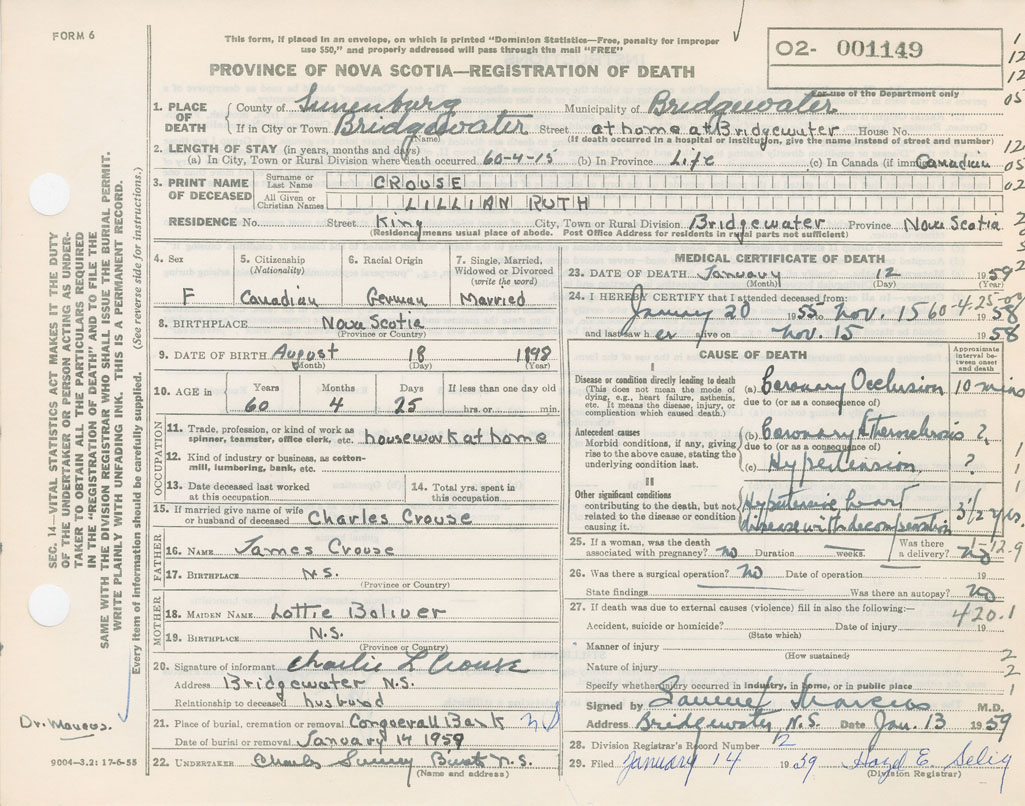 FORM 6
This form, if placed in an envelope, on which is printed "Dominion Statistics—Free, penalty for improper
use $50," and properly addressed will pass through the mail "FREE"
PROVINCE OF NOVA SCOTIA—REGISTRATION OF DEATH
02- 001149
For use of the Department only
1. PLACE OF DEATH County of Lunenburg Municipality of Bridgewater
If in City or Town Bridgewater Street at home at Bridgewater House No.
(Name) (If death occurred in a hospital or institution, give the name instead of street and number)
2. LENGTH OF STAY (in years, months and days)
(a) In City, Town or Rural Division where death occurred 60-4-15 (b) In Province Life (c) In Canada (if imm Canadian
3. PRINT NAME OF DECEASED Surname or Last Name CROUSE
All Given or Christian Names LILLIAN RUTH
RESIDENCE No. Street King City, Town or Rural Division Bridgewater Province Nova Scotia
(Residence means usual place of abode. Post Office Address for residents in rural parts not sufficient)
4. Sex F
5. Citizenship (Nationality) Canadian
6. Racial Origin German
7. Single, Married, Widowed or Divorced (write the word) Married
8. BIRTHPLACE Nova Scotia
(Province or Country)
9. DATE OF BIRTH August 18 1898
(Month) (Day) (Year)
10. AGE in Years 60 Months 4 Days 25 If less than one day old hrs. or min.
OCCUPATION
11. Trade, profession, or kind of work as spinner, teamster, office clerk, etc. housework at home
12. Kind of industry or business, as cotton-mill, lumbering, bank, etc.
13. Date deceased last worked at this occupation.
14. Total yrs. spent in this occupation.
15. If married give name of wife or husband of deceased Charles Crouse
FATHER
16. NAME James Crouse
17. BIRTHPLACE N.S.
(Province or Country)
MOTHER
18. MAIDEN NAME Lottie Boliver
19. BIRTHPLACE N.S.
(Province or Country)
20. Signature of informant Charlie L Crouse
Address Bridgewater N.S.
Relationship to deceased husband
21. Place of burial, cremation or removal N.S
Date of burial or removal January 14 1959
22. UNDERTAKER Charles N.S.
(Name and address)
MEDICAL CERTIFICATE OF DEATH
23. DATE OF DEATH January 12 1959
(Month) (Day) (Year)
24. I HEREBY CERTIFY that I attended deceased from:
January 20 1955 to Nov. 15 1958
60-4-25-00
and last saw her alive on Nov. 15 1958
CAUSE OF DEATH
Approximate interval between onset and death
I
Disease or condition directly leading to death
(This does not mean the mode of dying, e.g., heart failure, asthenia, etc. It means the disease, injury, or complication which caused death.)
(a) Coronary Occlusion 10 mins
due to (or as a consequence of)
Antecedent causes
Morbid conditions, if any, giving rise to the above cause, stating the underlying condition last.
(b) Coronary Atherosclerosis ?
due to (or as a consequence of)
(c) Hypertension, ?
II
Other significant conditions
contributing to the death, but not related to the disease or condition causing it.
Hypertensive heart
disease with decompensation 3 1/2 yrs.
25. If a woman, was the death associated with pregnancy? no Duration weeks. Was there a delivery? no
1-12.9
26. Was there a surgical operation? no Date of operation 19
State findings Was there an autopsy? no
27. If death was due to external causes (violence) fill in also the following:—
420.1
Accident, suicide or homicide? Date of injury 19
(State which)
Manner of injury
(How sustained)
Nature of injury
Specify whether injury occurred in industry, in home, or in public place
Signed by Marcus M.D.
Address Bridgewater, N.S. Date Jan. 13 1959
28. Division Registrar's Record Number 12
29. Filed January 14 1959 E. Selig
(Division Registrar)
SEC. 14—VITAL STATISTICS ACT MAKES IT THE DUTY
OF THE UNDERTAKER OR PERSON ACTING AS UNDER-
TAKER TO OBTAIN ALL THE PARTICULARS REQUIRED
IN THE "REGISTRATION OF DEATH" AND TO FILE THE
SAME WITH THE DIVISION REGISTRAR WHO SHALL ISSUE THE BURIAL PERMIT.
WRITE PLAINLY WITH UNFADING INK. THIS IS A PERMANENT RECORD.
Every item of information should be carefully supplied. (See reverse side for instructions.)
Dr. Marcus.
9004—3.2: 17-6-55